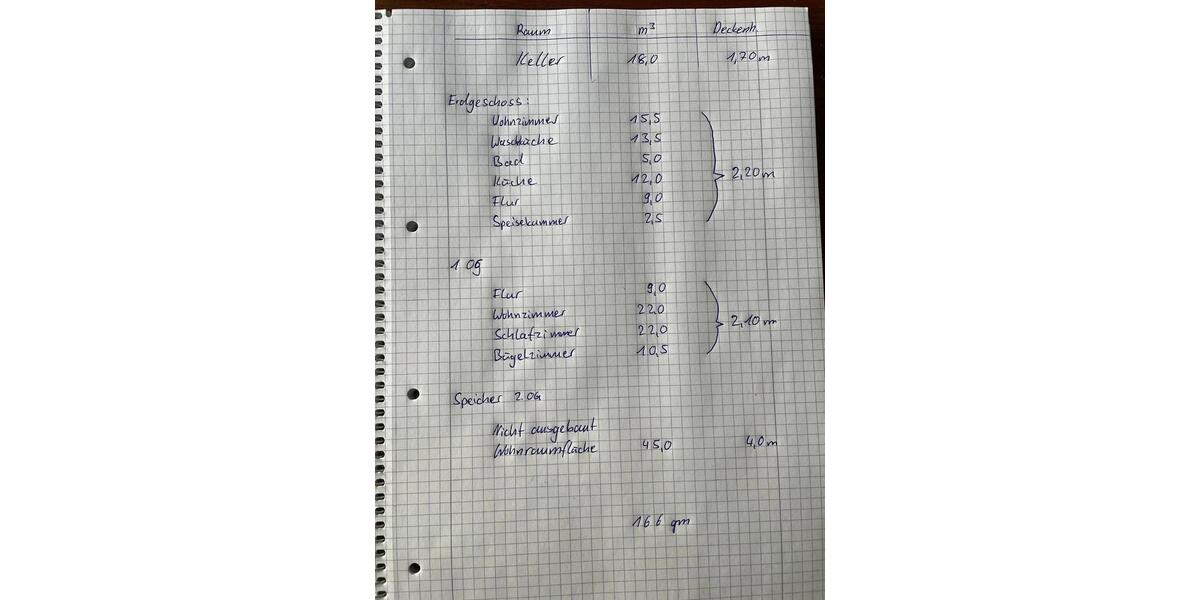 Raum m³ Deckenh.
Keller 18,0 1,70 m
Erdgeschoss:
Wohnzimmer 15,5
Waschküche 13,5
Bad 5,0
Küche 12,0
2,20 m
Flur 9,0
Speisekammer 2,5
1 OG
Flur 9,0
Wohnzimmer 22,0
2,10 m
Schlafzimmer 22,0
Bügelzimmer 10,5
Speicher 2.OG
Nicht ausgebaut
Wohnraumfläche 45,0 4,0 m
166 qm